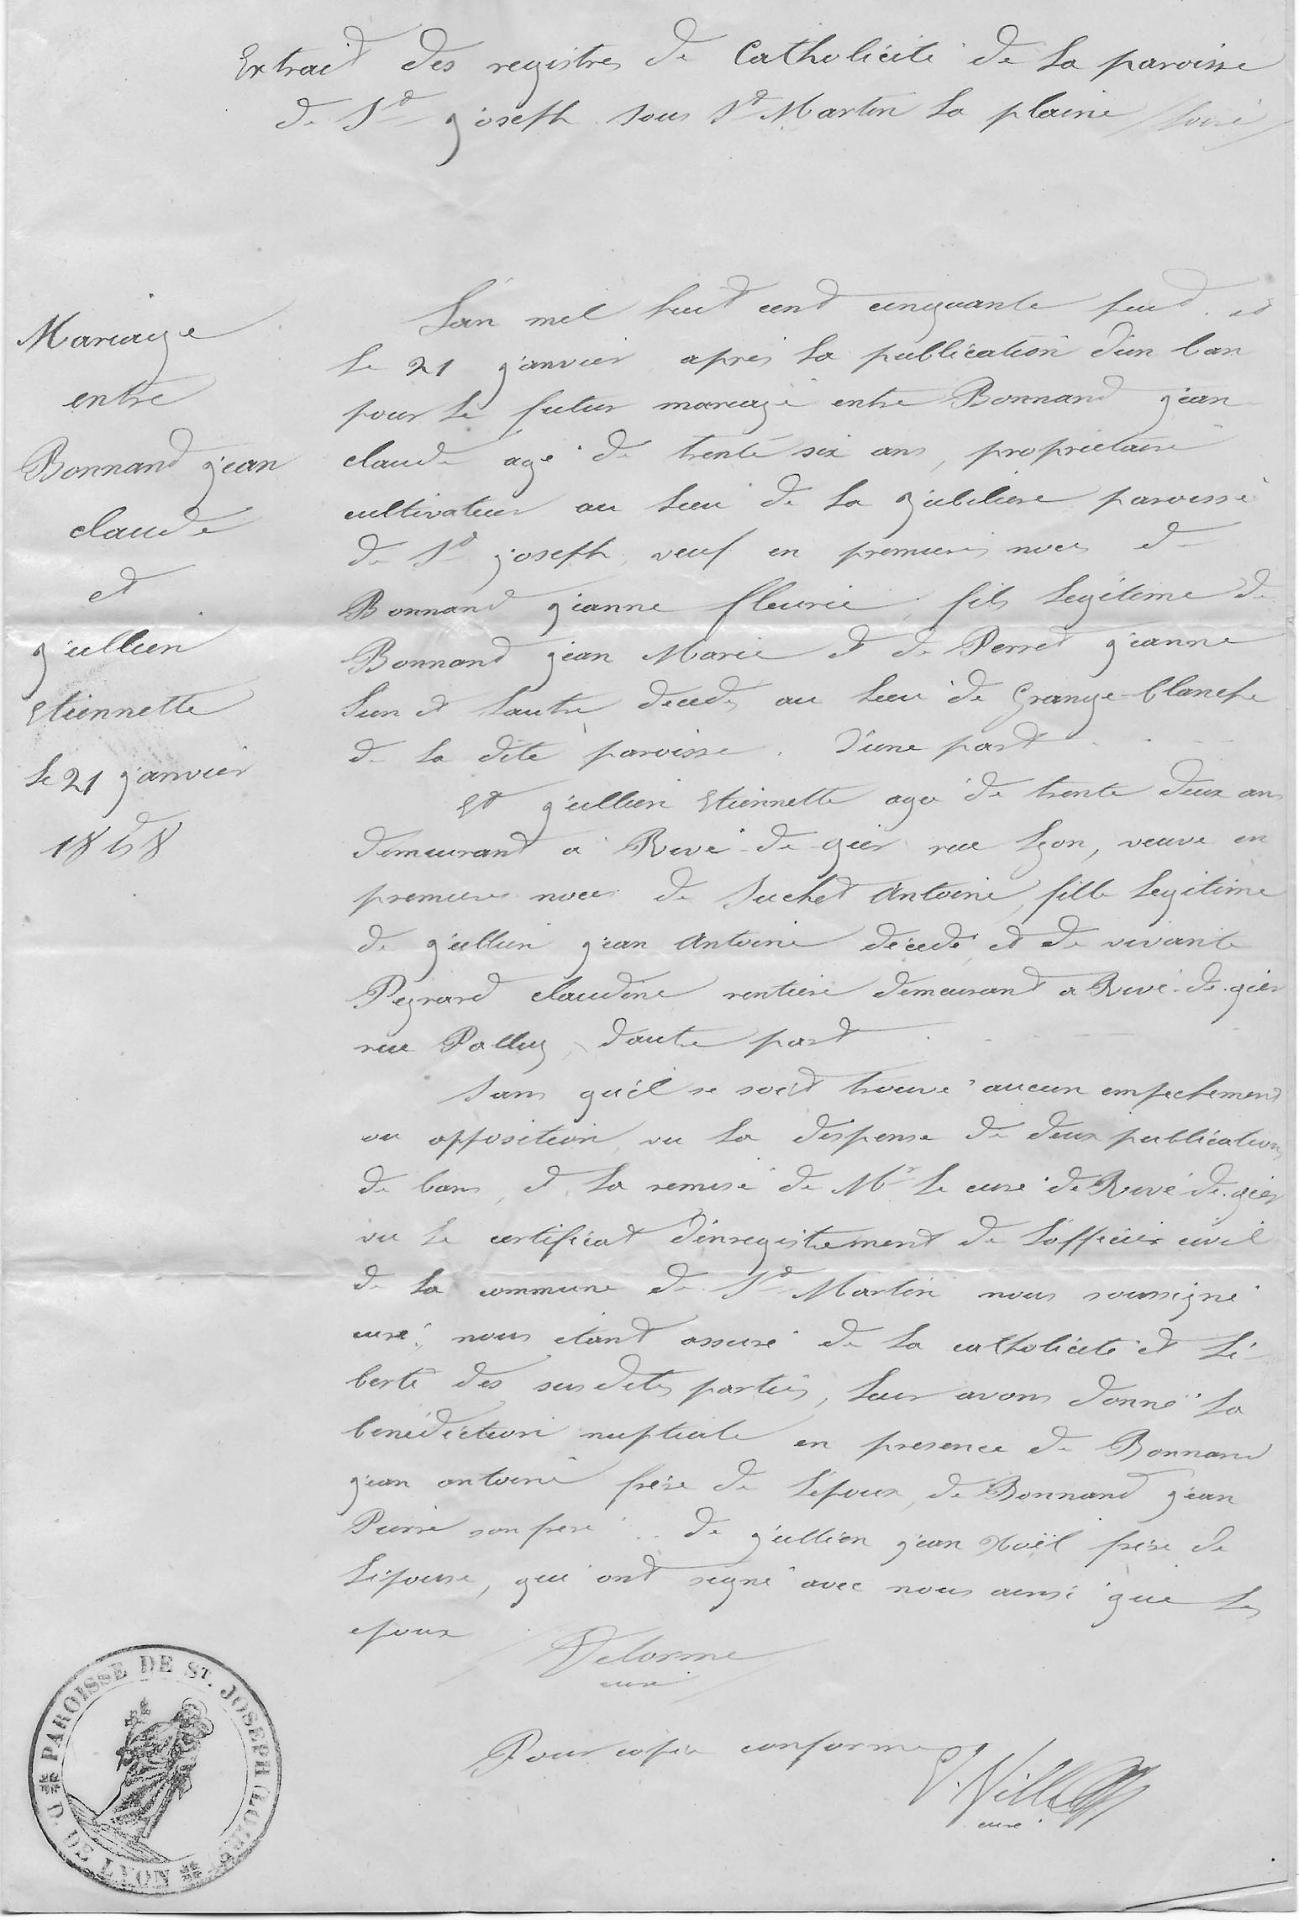 Extrait des registres de Catholicité de la paroisse
de St joseph sous St Martin la plaine (Loire)
Mariage
entre
Bonnand jean
claude
et
jullien
Etiennette
le 21 janvier
1858
L'an mil huit cent cinquante huit et
le 21 janvier après la publication d'un ban
pour le futur mariage entre Bonnand jean
claude agé de trente six ans, propriétaire
cultivateur au lieu de la jubiliere paroisse
de St joseph veuf en premieres noces de
Bonnand jeanne fleurie, fils legitime de
Bonnand jean Marie et de Perret jeanne
l'un et l'autre decedés au lieu de Grange-blanche
de la dite paroisse. D'une part
Et jullien Etiennette agée de trente deux ans
demeurant a Rive-de-gier rue Lyon, veuve en
premieres noces de Suchet Antoine, fille legitime
de jullien jean Antoine décédé et de vivante
Peyrard claudine rentiere demeurant a Rive-de-gier
rue Palluy, d'autre part
Sans qu'il se soit trouvé aucun empechement
ou opposition, vu la dispense de deux publications
de bans, et la remise de Mr le curé de Rive-de-gier
vu le certificat d'enregistrement de l'officier civil
de la commune de St Martin nous soussigné
curé, nous etant assuré de la catholicité et li-
berté des susdites parties, leur avons donné la
benediction nuptiale en presence de Bonnand
jean antoine frère de l'époux, de Bonnand jean
Pierre son frere de jullien jean Noël frère de
l'épouse, qui ont signé avec nous ainsi que les
epoux
Delorme
curé
Pour copie conforme
curé
PAROISSE DE ST. JOSEPH (LOIRE)
D. DE LYON